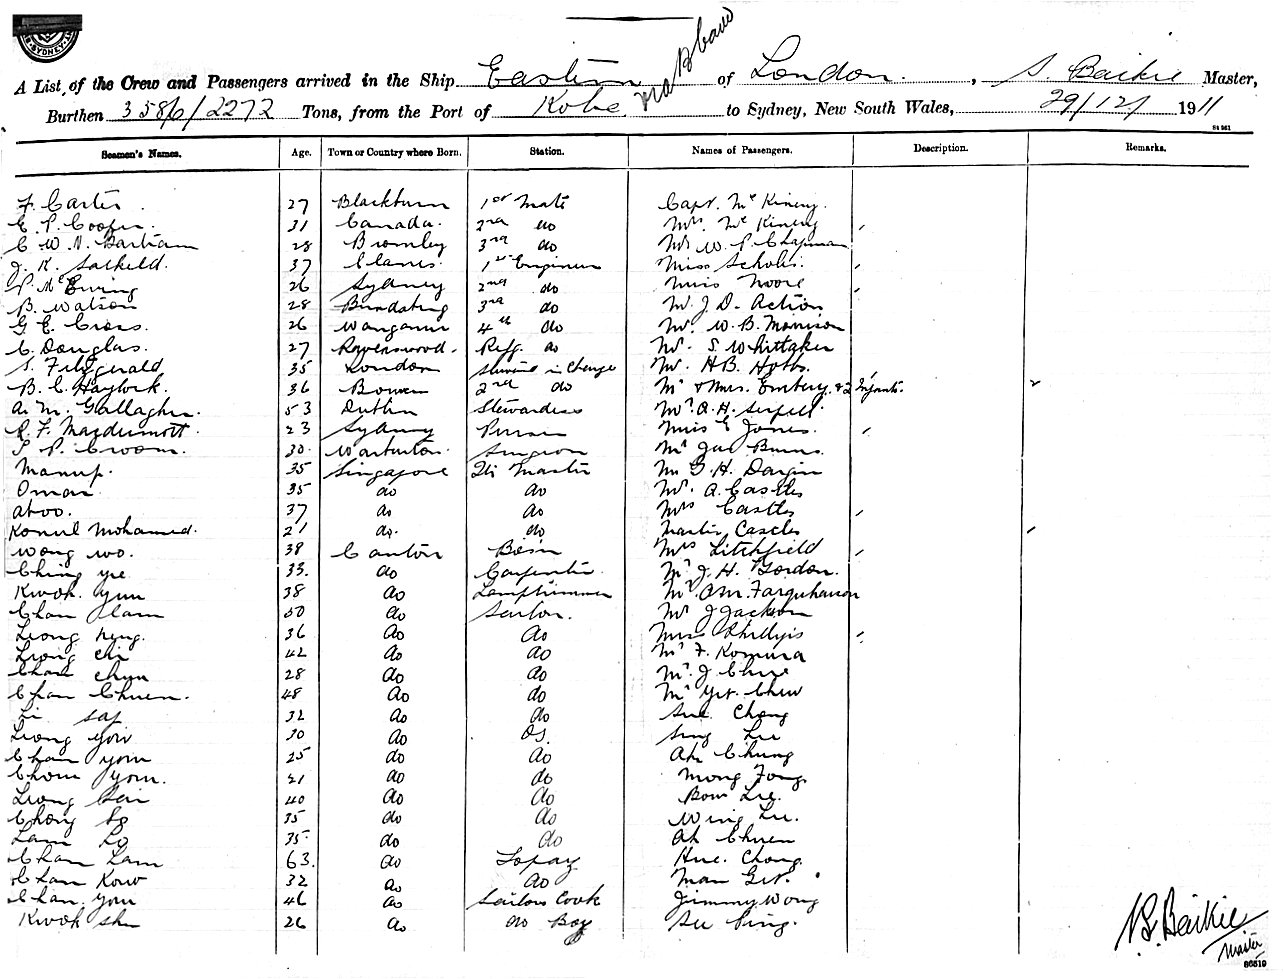 SYDNEY
A List of the Crew and Passengers arrived in the Ship Eastern of London, S. Baikie Master,
Burthen 3586/2272 Tons, from the Port of Kobe via to Sydney, New South Wales, 29/12/1911
Seamen's Names. Age. Town or Country where Born. Station. Names of Passengers. Description. Remarks.
F. Carter. 27 Blackburn 1st Mate Capt. McKinery.
E. P. Cooper. 31 Canada. 2nd do Mrs. McKinery
C. W. N. Bartram 28 Bromley 3rd do Mr W. P. Chapman
J. K. Salkeld. 37 1st Engineer Miss Scholes.
P. McEwing 26 Sydney 2nd do Miss Moore
B. Watson 28 Bundaberg 3rd do Mr J. D. Action
G. E. Cross. 26 Wanganui 4th do Mr. W. B. Morrison
C. Douglas. 27 Ravenswood. Refg. do Mr. S Whittaker
S. Fitzgerald 35 London Steward in Charge Mr. H B. Hobbs.
B. C. Haylock. 36 Bowen 2nd do Mr & Mrs. Embery. & 2 Infants.
A. M. Gallagher. 53 Dublin Stewardess Mr. A. H.
R. F. Macdermott 23 Sydney Purser Miss E Jones.
P. Croom. 30 Warburton. Surgeon Mr Jas Burns.
Manup. 35 Singapore Qtr Master Mr G. H. Dargin
Omar. 35 do do Mr. A. Castles
Aboo. 37 do do Mrs Castles
Mohamed. 21 do. do Master Castles
Wong Wo. 38 Canton Bosn Mrs Litchfield
Ching Yee 33. do Carpenter. Mr J. H. Gordon.
Kwok Yuu 38 do Lamptrimmer Mr A M. Farquharson
Chan Lam 50 do Sailor. Mr J Jackson
Leong Ning. 36 do do Miss Phillips
Leong Chi 42 do do Mr F. Komura
Chan Chun 28 do do Mr. J Chue
Chan Chuen. 48 do do Mr Yet. Chew
Li Sap 32 do do Sue Chong
Leong Yow 30 do do. Sing Lee
Chan Yow 25 do do Ah Chung
Yow. 21 do do Mong Fong
Leong 40 do do Bow Lee.
Chong So 35 do do Wing Lee.
Lam Lo 35 do do Ah Chuen
Chan Lam 63. do Topaz Hue. Chong
Chan Kow 32 do do Man Get.
Chan You 46 do Sailors Cook Jimmy Wong
Kwok She 26 do do Boy Su Ping.
S. Baikie
Master